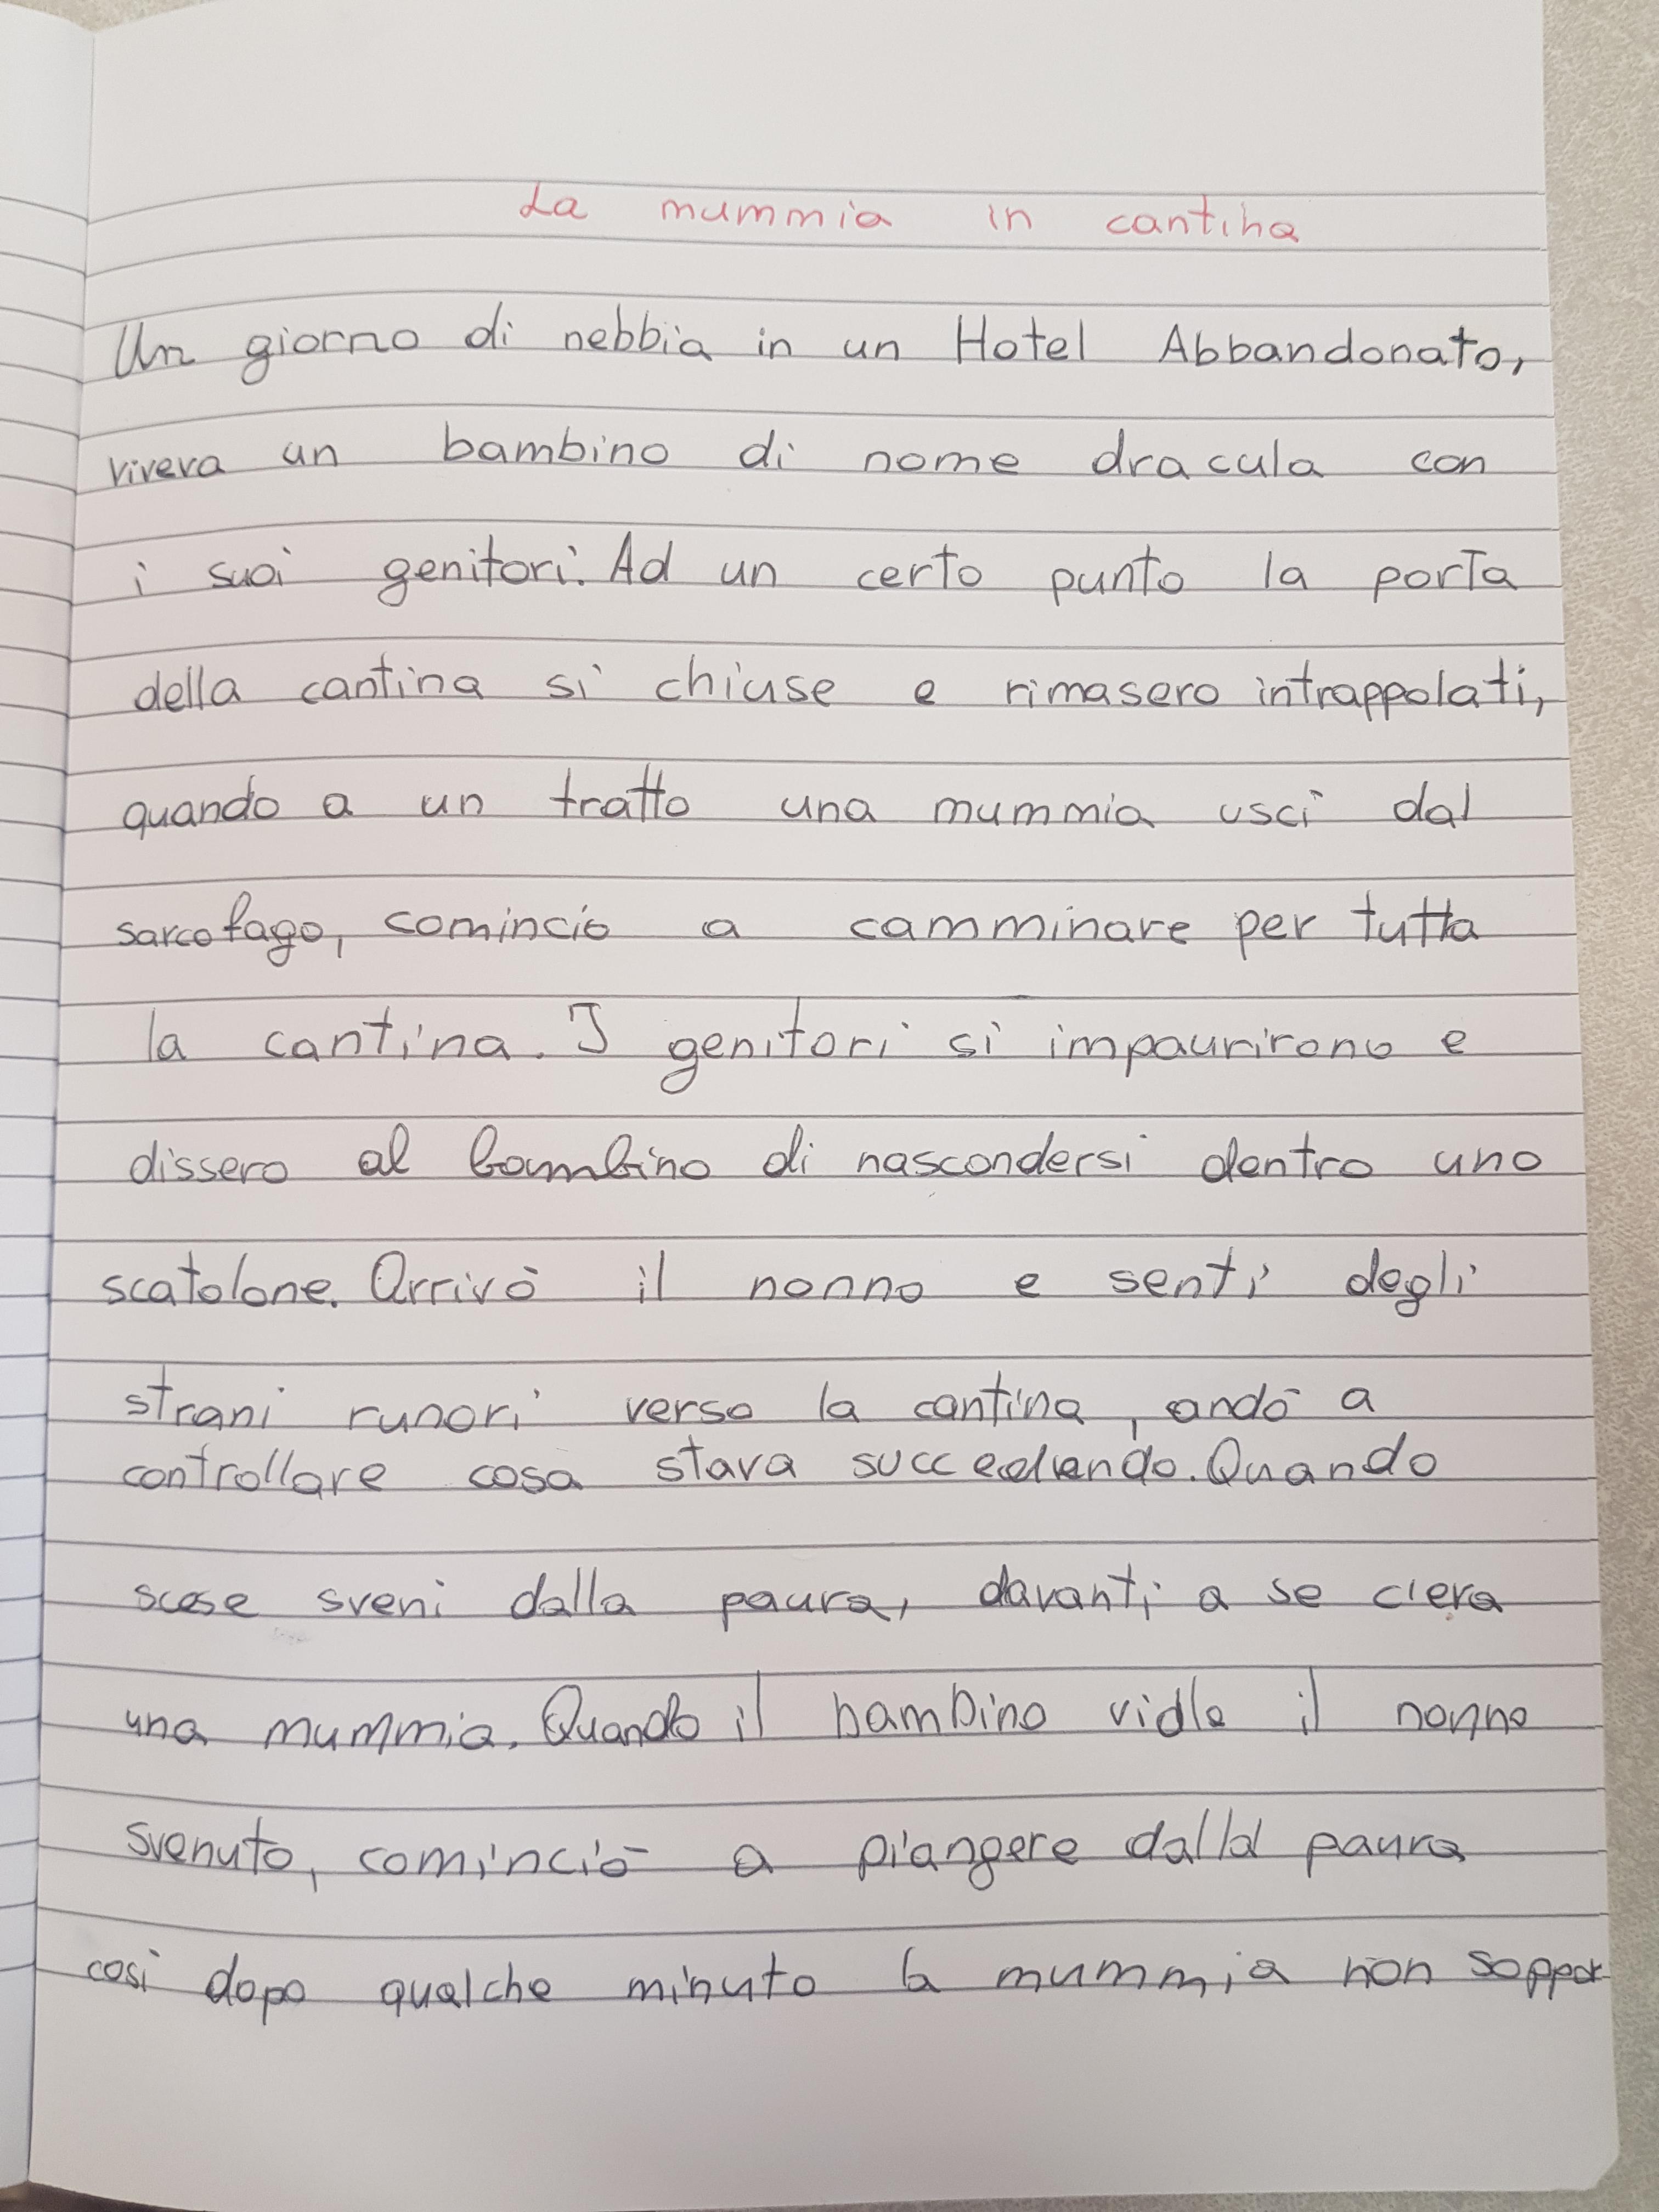 La mummia in cantina
Un giorno di nebbia in un Hotel Abbandonato,
viveva un bambino di nome dracula con
i suoi genitori. Ad un certo punto la porta
della cantina si chiuse e rimasero intrappolati,
quando a un tratto una mummia usci dal
sarcofago, cominciò a camminare per tutta
la cantina. I genitori si impaurirono e
dissero al bambino di nascondersi dentro uno
scatolone. Arrivò il nonno e sentì degli
strani runori verso la cantina, andò a
controllare cosa stava succedendo. Quando
scese sveni dalla paura, davanti a se c'era
una mummia. Quando il bambino vide il nonno
svenuto, cominciò a piangere dalla paura
così dopo qualche minuto la mummia non soppor